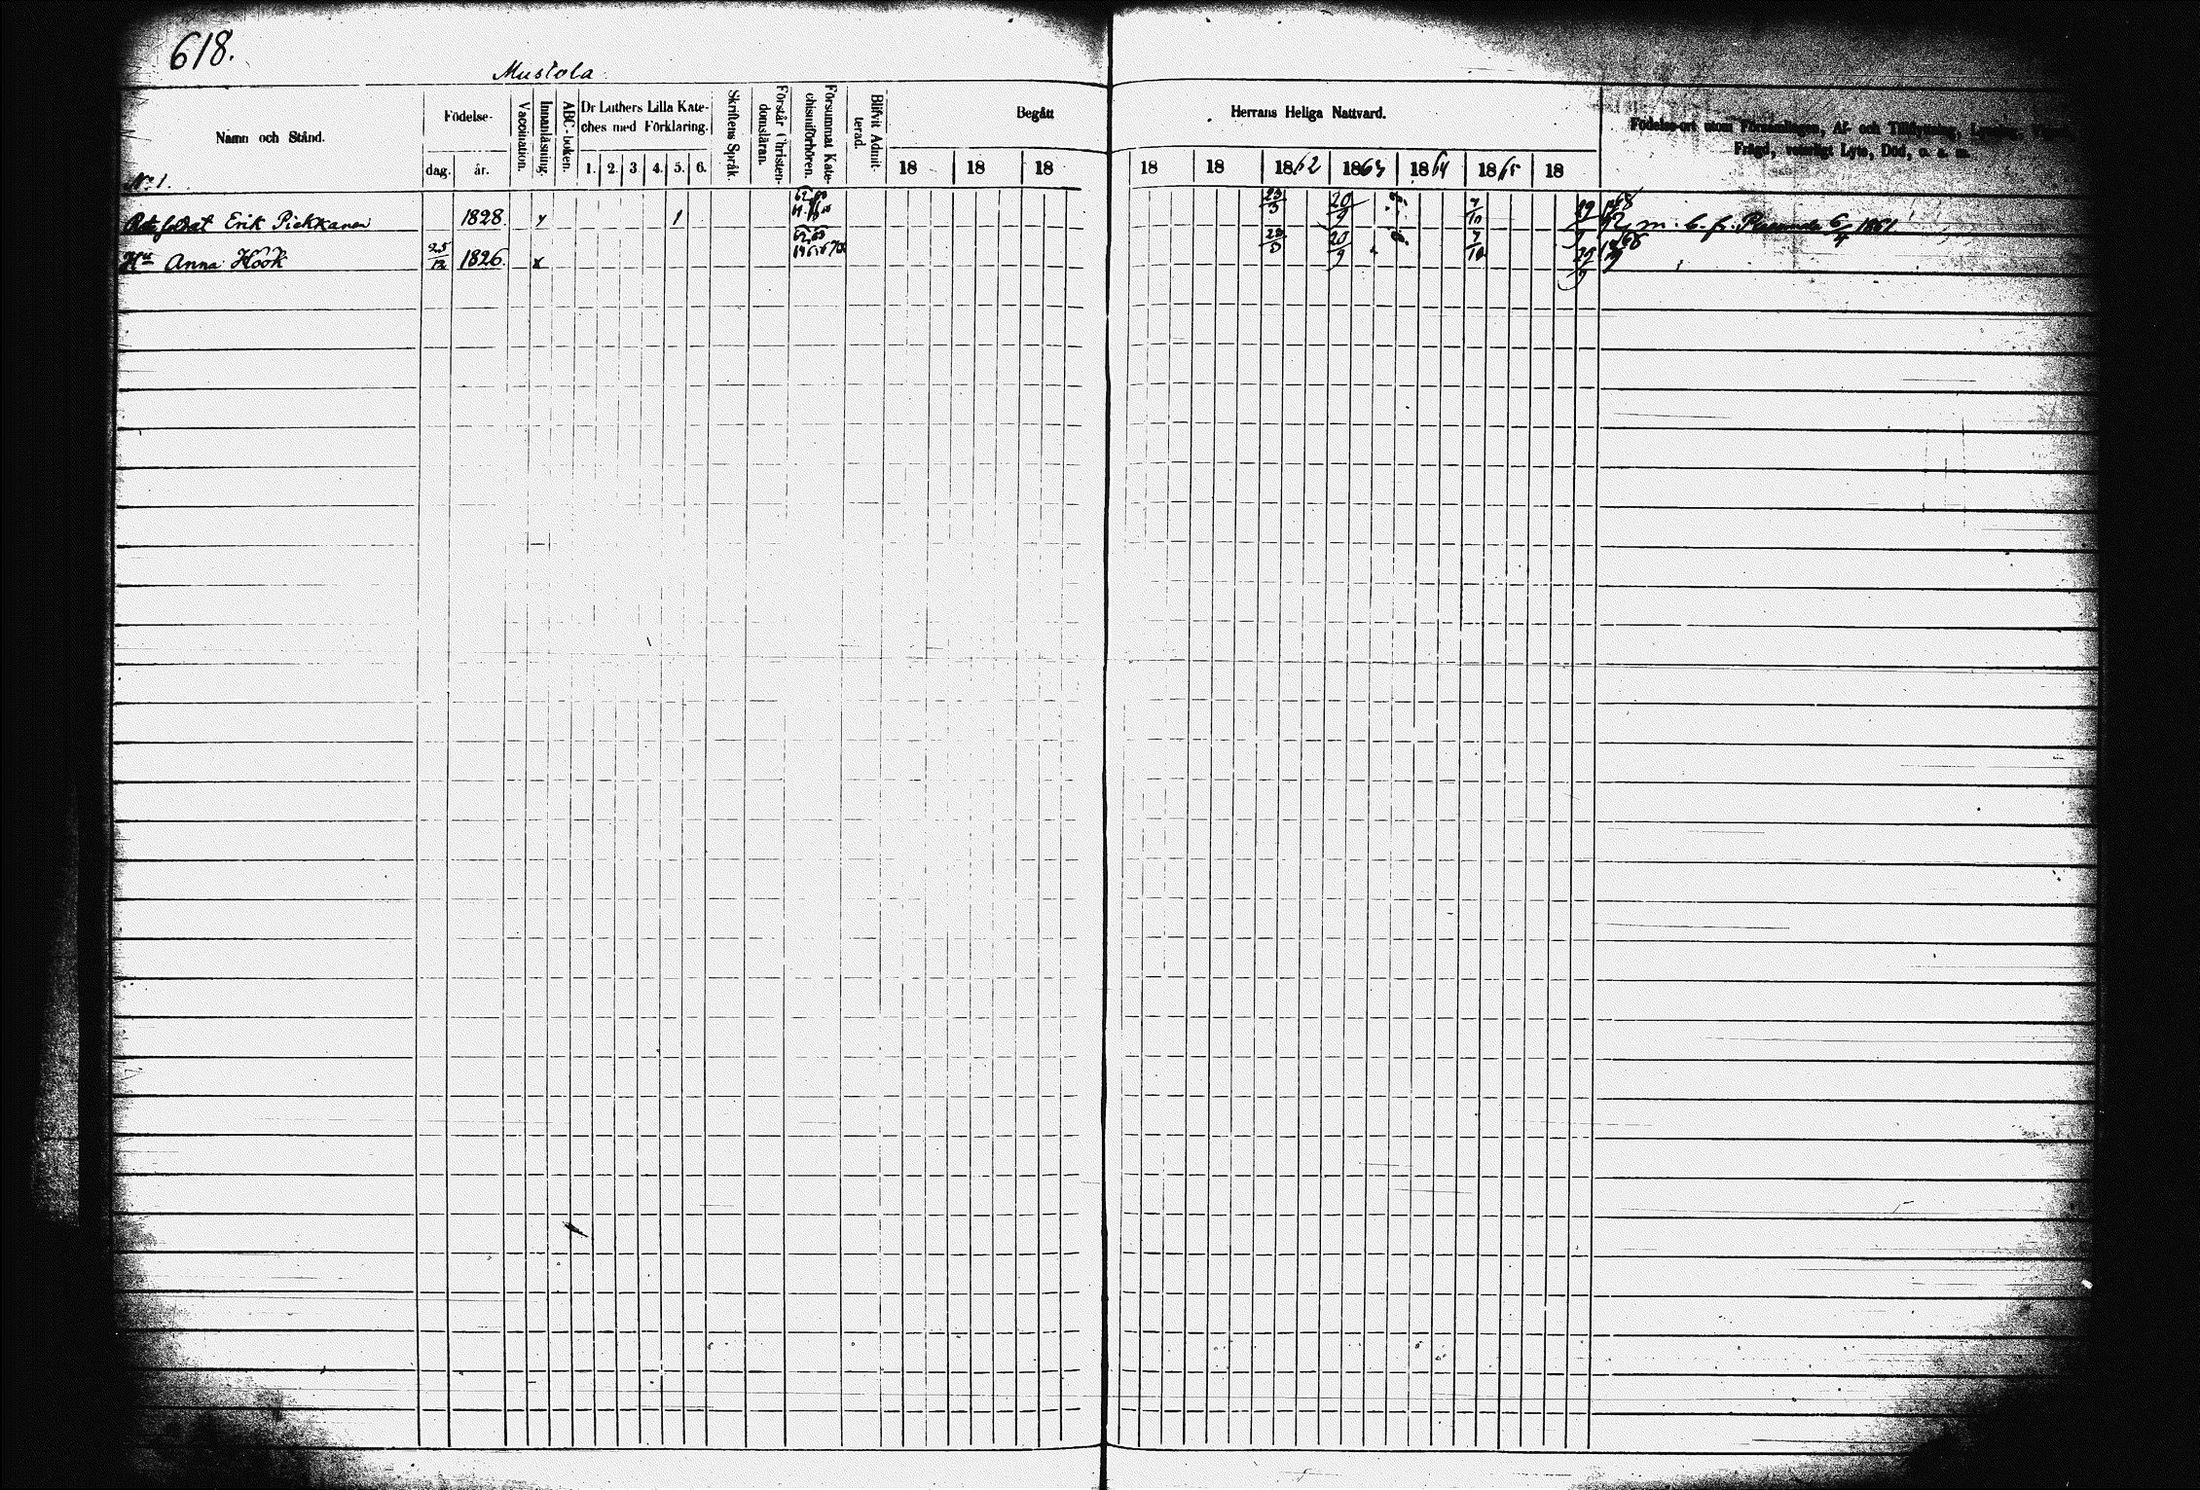 618.
Mustola.
Namn och Stånd.
Födelse-
dag.
år.
Vaccination.
Innanläsning.
ABC-boken.
Dr Luthers Lilla Kate-
ches med Förklaring.
1. 2. 3. 4. 5. 6.
Skriftens Språk.
Förstår Christen-
domsläran.
Försummat Kate-
chismiförhören.
Blifvit Admit-
terad.
Begått
18 18 18
Herrans Heliga Nattvard.
18 18 1862 1863 1864 1865 18
Födelse-ort utom Församlingen, Af- och Tillflyttning, Lysning,
Frägd, veterligt Lyte, Död, o. s. m.
No 1.
Erik Pickkanen 1828. 1 23/3 20/9 7/10 m. b. fr. 6/4 1861
Hu Anna Höök 25/12 1826. x 23/3 20/9 7/10